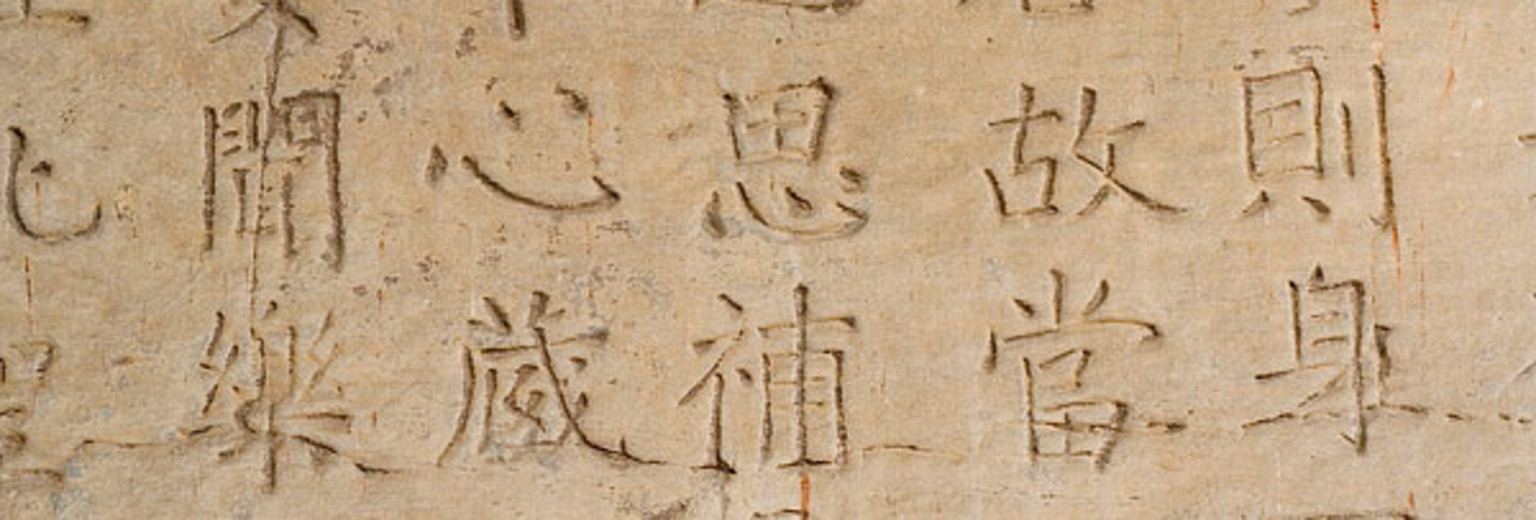 則身
故當
思補
心藏
聞樂